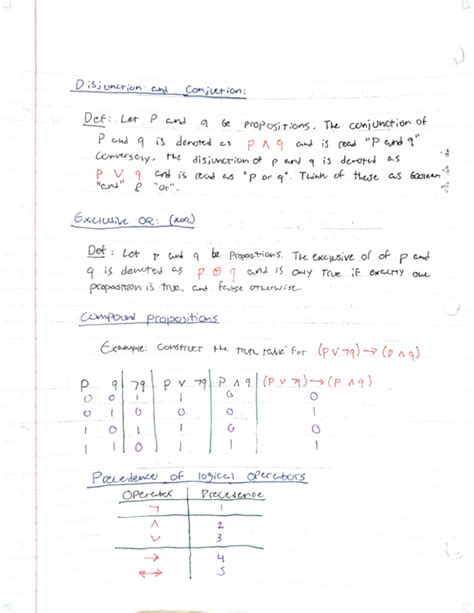 Disjunction and Conjuction:
Def: Let P and q be propositions. The conjunction of
P and q is denoted as p ∧ q and is read "P and q"
Conversely, the disjunction of p and q is denoted as
p ∨ q and is read as "p or q". Think of these as boolean
"and" & "or".
Exclusive OR: (xor)
Def: Let p and q be propositions. The exclusive of of p and
q is denoted as p ⊕ q and is only true if exactly one
proposition is true, and false otherwise.
Compound Propositions
Example: Construct the truth table for (p ∨ ¬q) → (p ∧ q)
p q ¬q p ∨ ¬q p ∧ q (p ∨ ¬q) → (p ∧ q)
0 0 1 1 0 0
0 1 0 0 0 1
1 0 1 1 0 0
1 1 0 1 1 1
Precedence of logical operators
Operator Precedence
¬ 1
∧ 2
∨ 3
→ 4
↔ 5